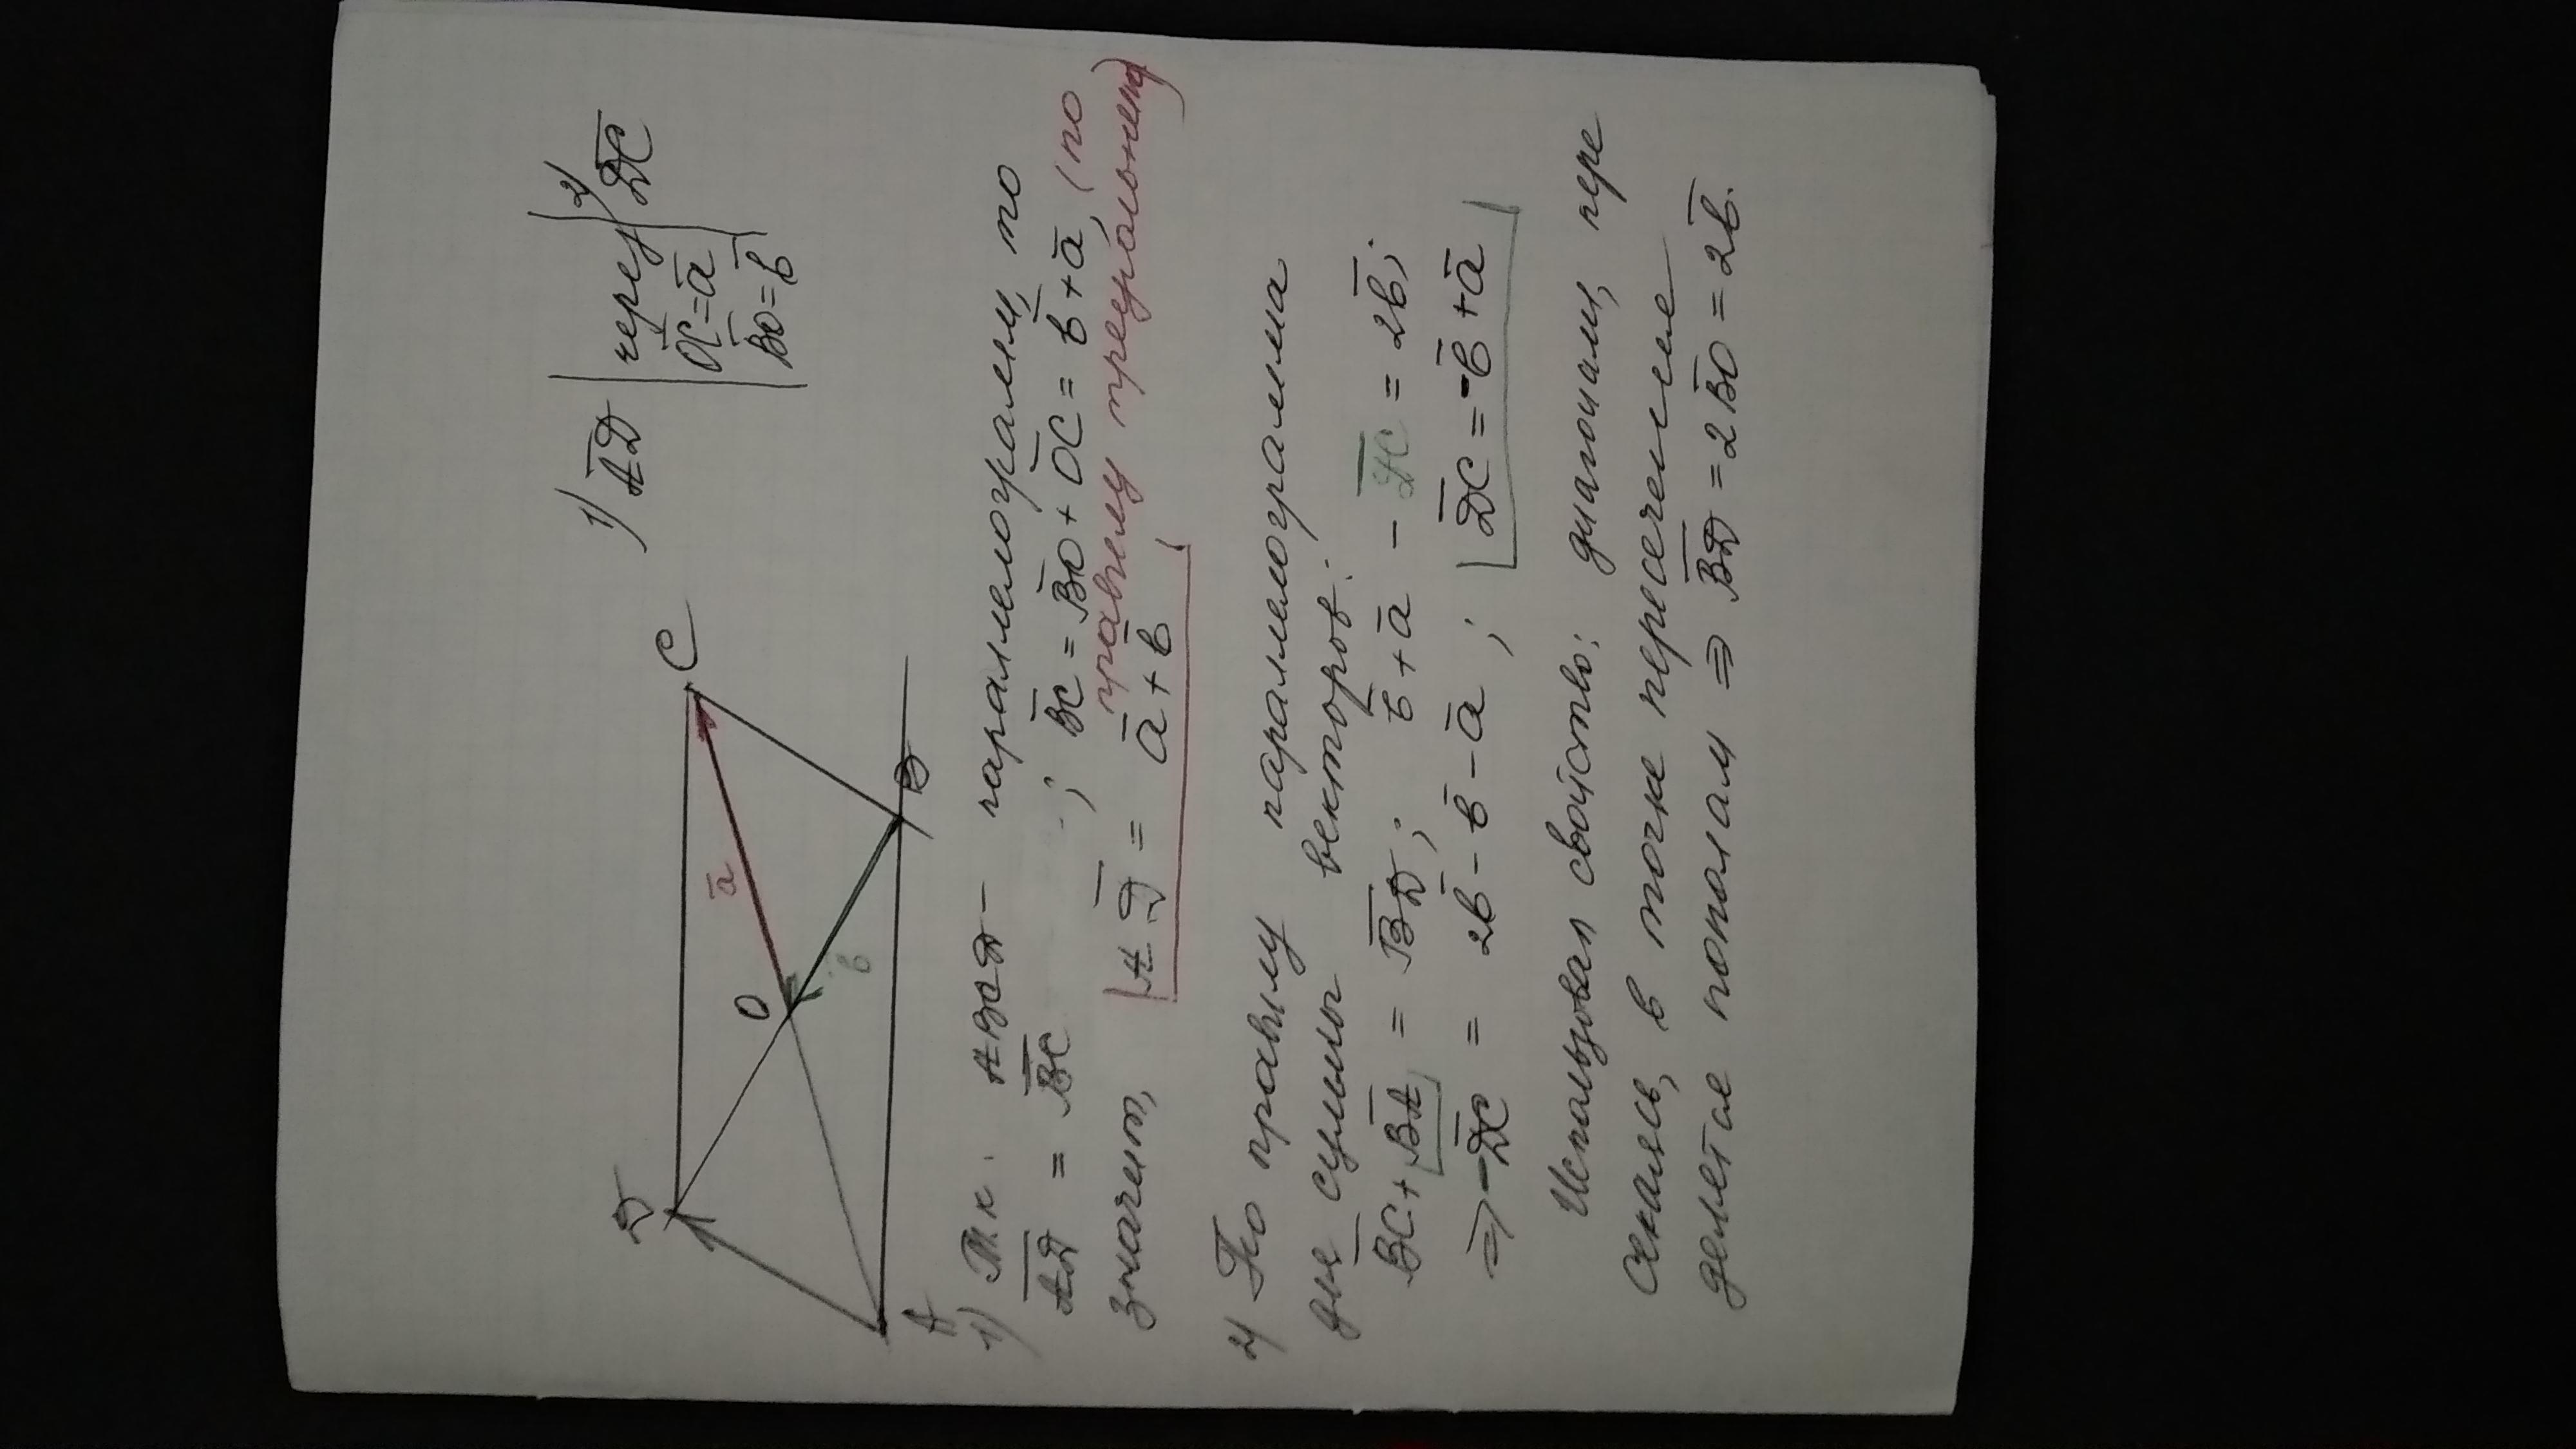 1) AD | через | 2) DC
OC = a
BO = b
D
C
O
a
b
A
B
1) Т.к. ABCD - параллелограмм, то
AD = BC ; BC = BO + OC = b + a, (по
правилу треугольника)
значит, AD = a + b
2) По правилу параллелограмма
для суммы векторов:
BC + BA = BD; b + a - DC = 2b;
⇒ -DC = 2b - b - a ; DC = -b + a
Использовал свойство: диагонали, пере
секаясь, в точке пересечение
делятся пополам ⇒ BD = 2BO = 2b.